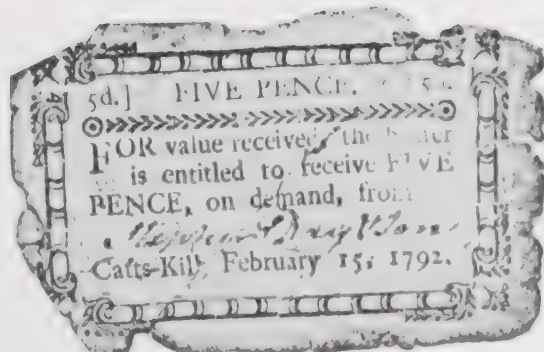 5d.] FIVE PENCE.
FOR value received the
is entitled to receive FIVE
PENCE, on demand, from
Catts-Kill, February 15, 1792.